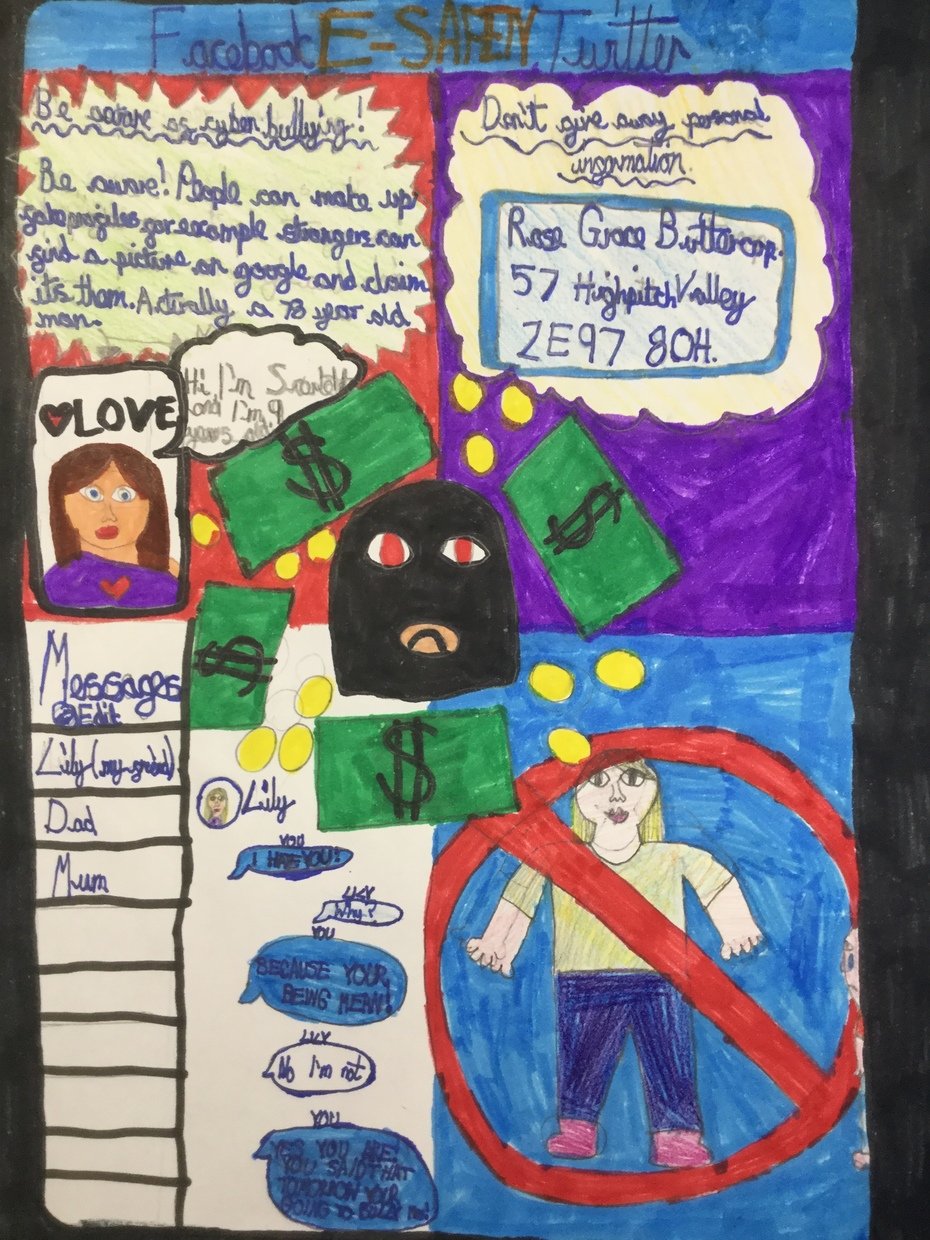 Facebook E-SAFETY Twitter
Be aware of cyber bullying!
Be aware! People can make up
fake profiles for example strangers can
find a picture on google and claim
it's them. Actually a 78 year old
man.
Don't give away personal
information.
Rose Grace Buttercup.
57 Highpitch Valley
ZE97 8OH.
Hi I'm Scarlett
and I'm 9
years old!
LOVE
$
$
$
$
Messages
Edit
Lily (my friend)
Dad
Mum
Lily
YOU
I HATE YOU!
LILY
Why?
YOU
BECAUSE YOUR
BEING MEAN!
LILY
No I'm not
YOU
YES YOU ARE!
YOU SAID THAT
TOMORROW YOUR
GOING TO BULLY ME!